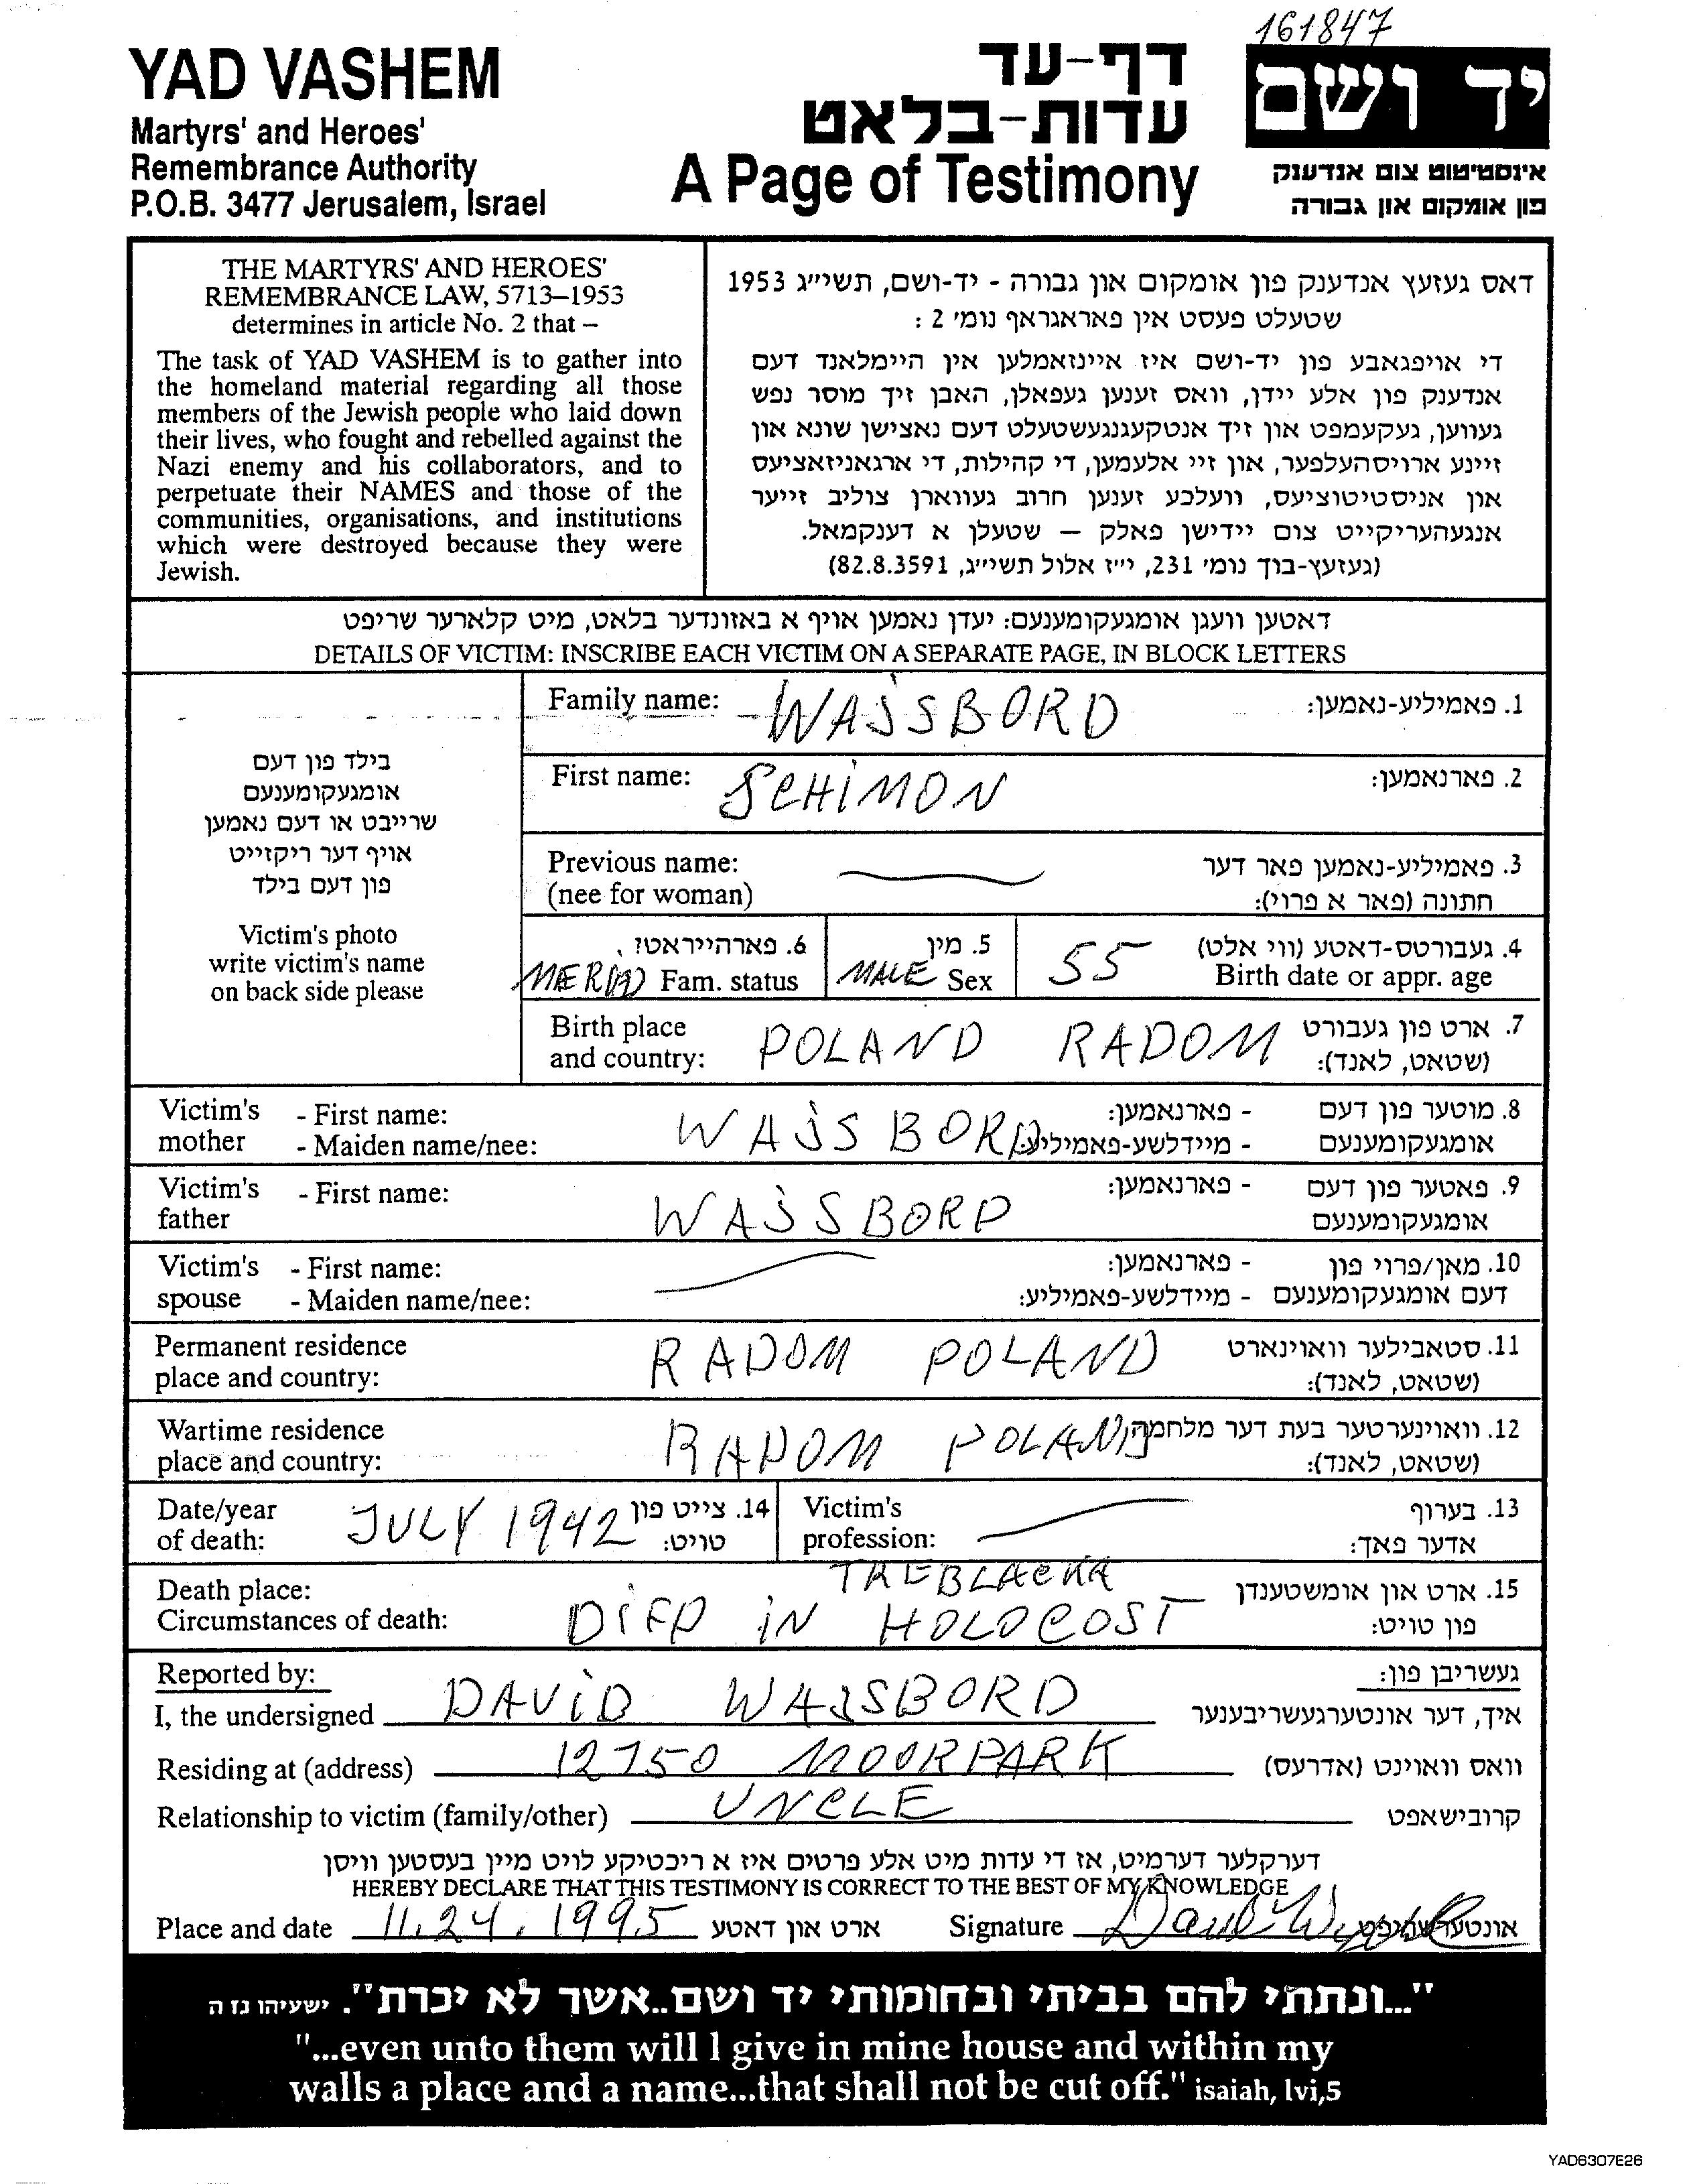 161847
YAD VASHEM
Martyrs' and Heroes'
Remembrance Authority
P.O.B. 3477 Jerusalem, Israel
דף-עד
עדות-בלאט
A Page of Testimony
יד ושם
אינסטיטוט צום אנדענק
פון אומקום און גבורה
THE MARTYRS' AND HEROES'
REMEMBRANCE LAW, 5713–1953
determines in article No. 2 that –
The task of YAD VASHEM is to gather into
the homeland material regarding all those
members of the Jewish people who laid down
their lives, who fought and rebelled against the
Nazi enemy and his collaborators, and to
perpetuate their NAMES and those of the
communities, organisations, and institutions
which were destroyed because they were
Jewish.
דאס געזעץ אנדענק פון אומקום און גבורה - יד-ושם, תשי״ג 1953
שטעלט פעסט אין פאראגראף נומ׳ 2 :
די אויפגאבע פון יד-ושם איז איינזאמלען אין היימלאנד דעם
אנדענק פון אלע יידן, וואס זענען געפאלן, האבן זיך מוסר נפש
געווען, געקעמפט און זיך אנטקעגנגעשטעלט דעם נאצישן שונא און
זיינע ארויסהעלפער, און זיי אלעמען, די קהילות, די ארגאניזאציעס
און אניסטיטוציעס, וועלכע זענען חרוב געווארן צוליב זייער
אנגעהעריקייט צום יידישן פאלק – שטעלן א דענקמאל.
(געזעץ-בוך נומ׳ 231, י״ז אלול תשי״ג, 82.8.3591)
דאטען וועגן אומגעקומענעם: יעדן נאמען אויף א באזונדער בלאט, מיט קלארער שריפט
DETAILS OF VICTIM: INSCRIBE EACH VICTIM ON A SEPARATE PAGE, IN BLOCK LETTERS
בילד פון דעם
אומגעקומענעם
שרייבט או דעם נאמען
אויף דער ריקזייט
פון דעם בילד
Victim's photo
write victim's name
on back side please
Family name: WAJSBORD 1. פאמיליע-נאמען:
First name: SCHIMON 2. פארנאמען:
Previous name: 3. פאמיליע-נאמען פאר דער
(nee for woman) חתונה (פאר א פרוי):
6. פארהייראטט? 5. מין 4. געבורטס-דאטע (ווי אלט)
Fam. status MALE Sex 55 Birth date or appr. age
Birth place POLAND RADOM 7. ארט פון געבורט
and country: (שטאט, לאנד):
Victim's - First name: - פארנאמען: 8. מוטער פון דעם
mother - Maiden name/nee: WAJSBORD - מיידלשע-פאמיליע: אומגעקומענעם
Victim's - First name: - פארנאמען: 9. פאטער פון דעם
father WAJSBORD אומגעקומענעם
Victim's - First name: - פארנאמען: 10. מאן/פרוי פון
spouse - Maiden name/nee: - מיידלשע-פאמיליע: דעם אומגעקומענעם
Permanent residence RADOM POLAND 11. סטאבילער וואוינארט
place and country: (שטאט, לאנד):
Wartime residence RADOM POLAND 12. וואוינערטער בעת דער מלחמה
place and country: (שטאט, לאנד):
Date/year 14. צייט פון Victim's 13. בערוף
of death: JULY 1942 טויט: profession: אדער פאך:
Death place: TREBLACKA 15. ארט און אומשטענדן
Circumstances of death: DIED IN HOLOCOST פון טויט:
Reported by: געשריבן פון:
I, the undersigned DAVID WAJSBORD איך, דער אונטערגעשריבענער
Residing at (address) 12750 MOORPARK וואס וואוינט (אדרעס)
Relationship to victim (family/other) UNCLE קרובישאפט
דערקלער דערמיט, אז די עדות מיט אלע פרטים איז א ריכטיקע לויט מיין בעסטען וויסן
HEREBY DECLARE THAT THIS TESTIMONY IS CORRECT TO THE BEST OF MY KNOWLEDGE
Place and date 11.24.1995 ארט און דאטע Signature אונטערשריפט
"...ונתתי להם בביתי ובחומותי יד ושם..אשר לא יכרת". ישעיהו נז ה
"...even unto them will I give in mine house and within my
walls a place and a name...that shall not be cut off." isaiah, lvi,5
YAD6307E26